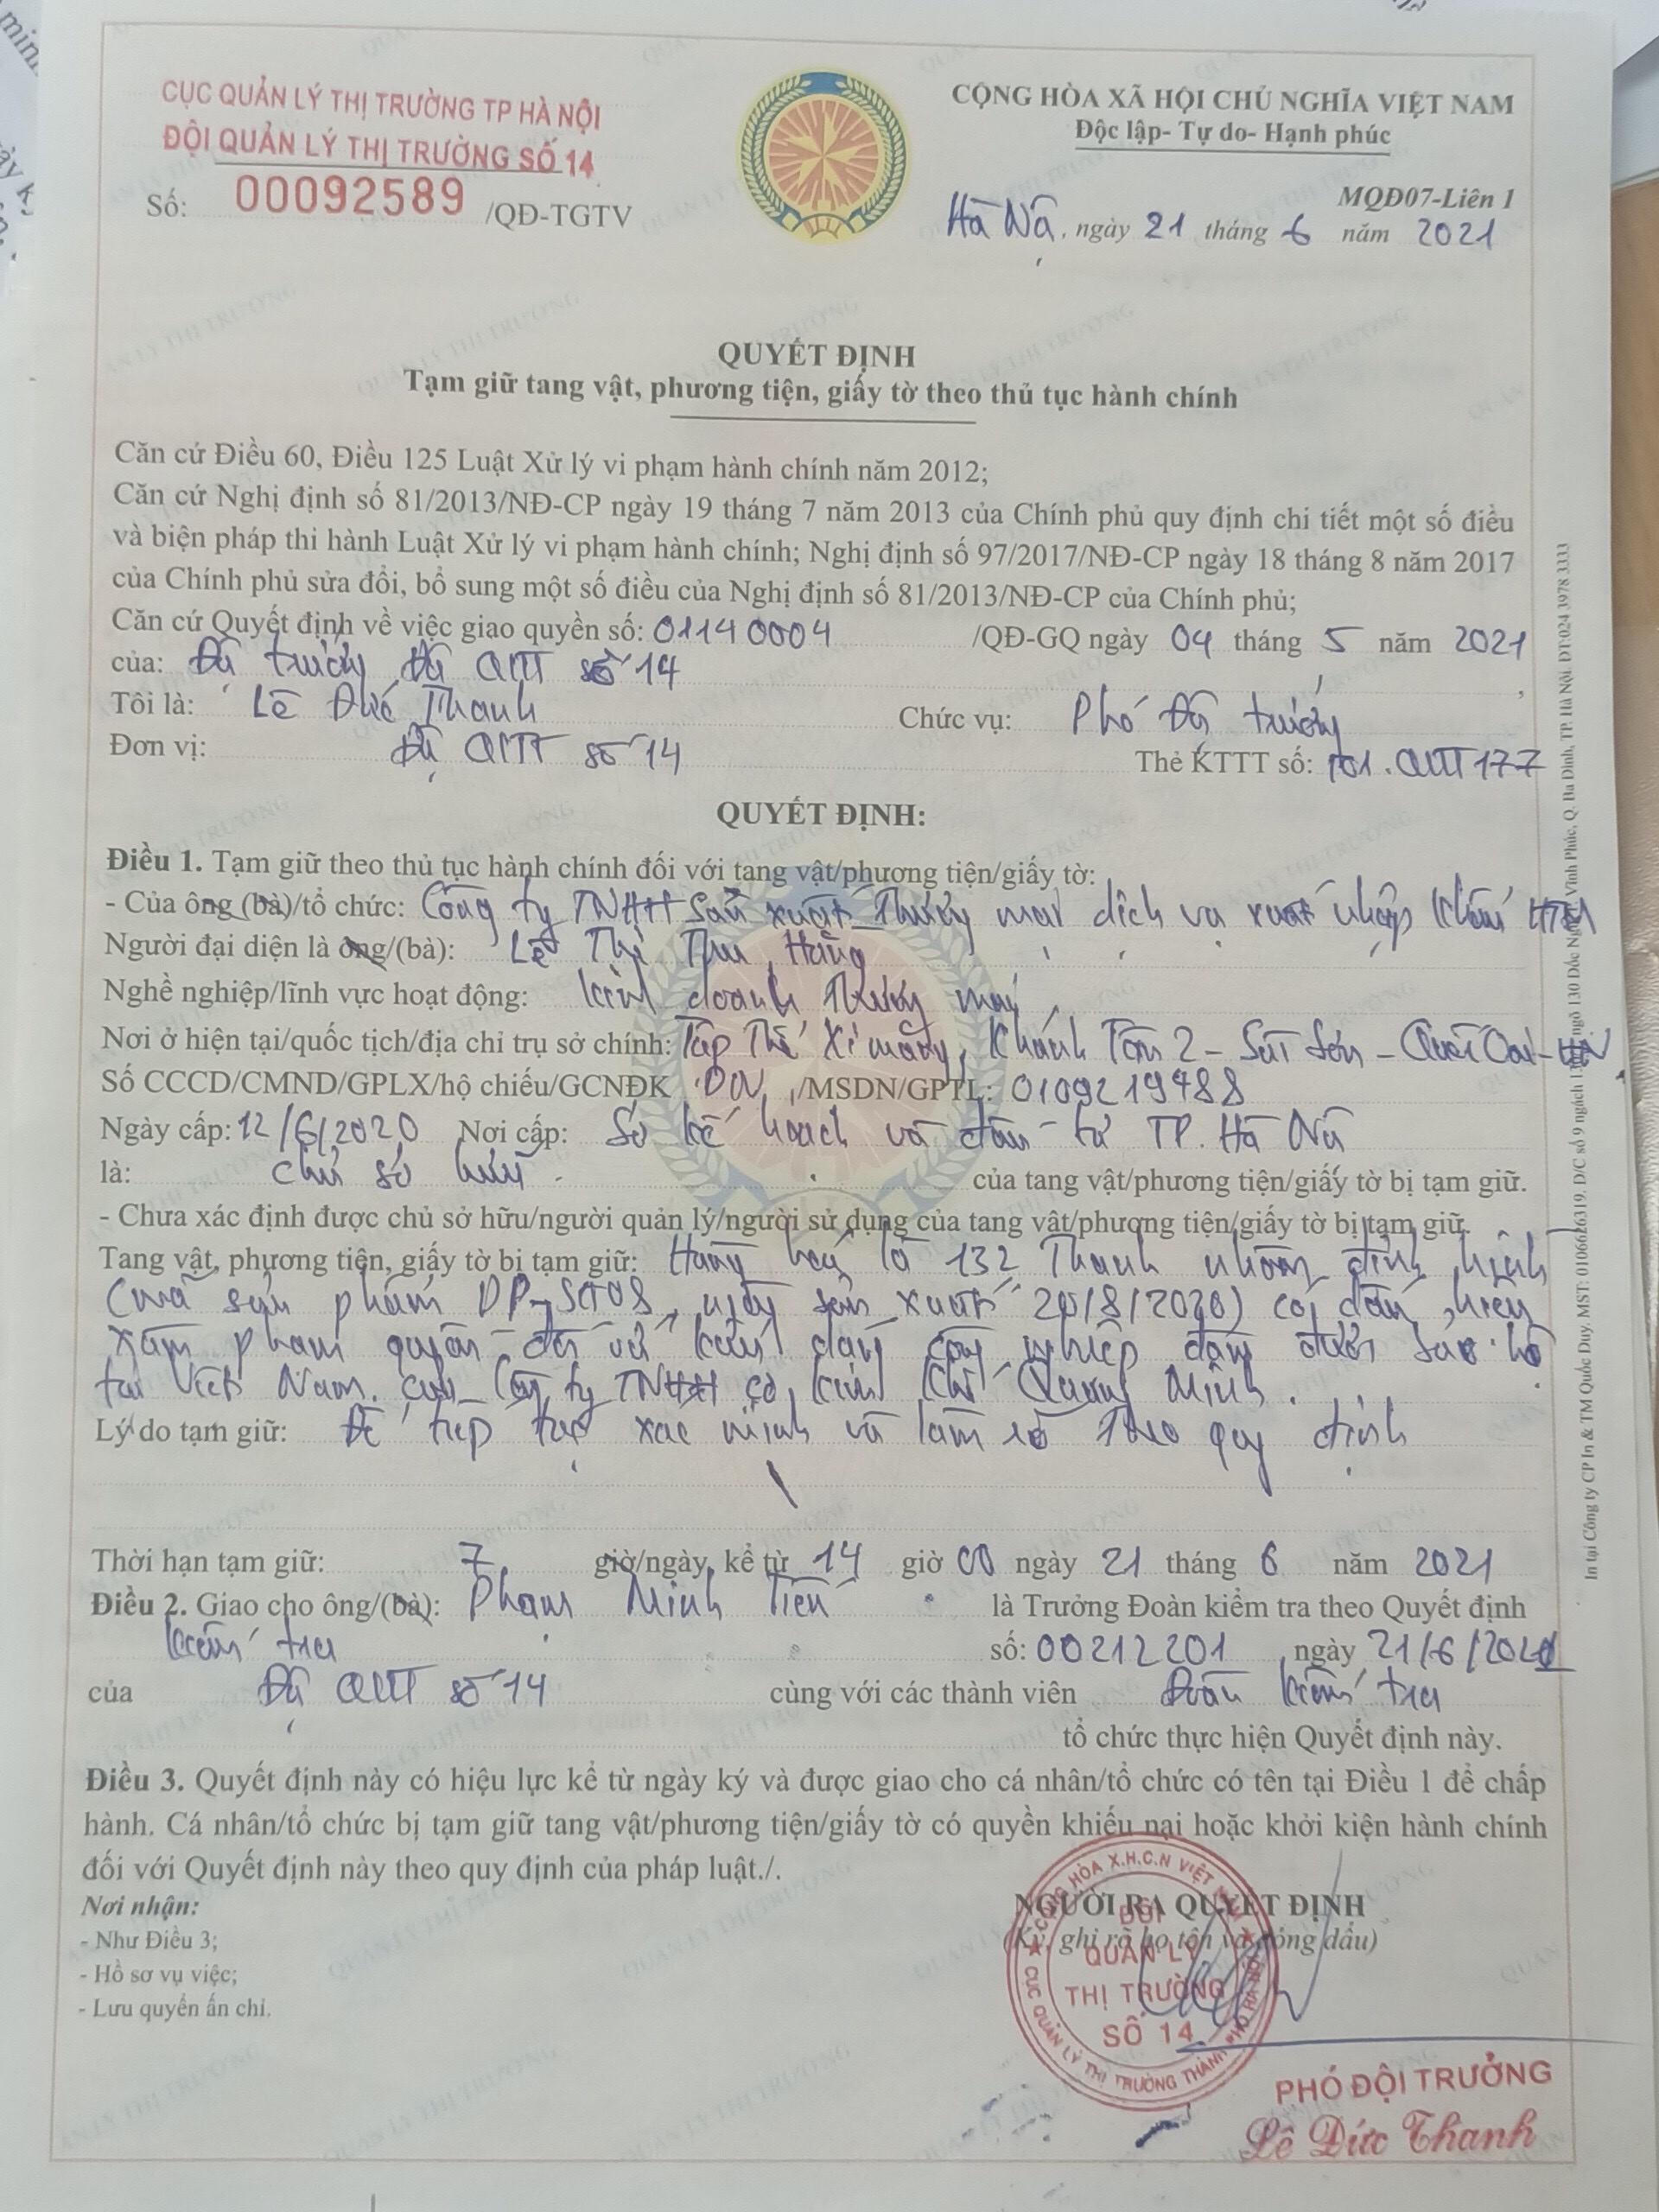 CỤC QUẢN LÝ THỊ TRƯỜNG TP HÀ NỘI
ĐỘI QUẢN LÝ THỊ TRƯỜNG SỐ 14
Số: 00092589 /QĐ-TGTV
CỘNG HÒA XÃ HỘI CHỦ NGHĨA VIỆT NAM
Độc lập- Tự do- Hạnh phúc
MQĐ07-Liên 1
Hà Nội, ngày 21 tháng 6 năm 2021
QUYẾT ĐỊNH
Tạm giữ tang vật, phương tiện, giấy tờ theo thủ tục hành chính
Căn cứ Điều 60, Điều 125 Luật Xử lý vi phạm hành chính năm 2012;
Căn cứ Nghị định số 81/2013/NĐ-CP ngày 19 tháng 7 năm 2013 của Chính phủ quy định chi tiết một số điều
và biện pháp thi hành Luật Xử lý vi phạm hành chính; Nghị định số 97/2017/NĐ-CP ngày 18 tháng 8 năm 2017
của Chính phủ sửa đổi, bổ sung một số điều của Nghị định số 81/2013/NĐ-CP của Chính phủ;
Căn cứ Quyết định về việc giao quyền số: 01140004 /QĐ-GQ ngày 04 tháng 5 năm 2021
của: Đội trưởng Đội QLTT số 14
Tôi là: Lê Đức Thanh Chức vụ: Phó Đội trưởng
Đơn vị: Đội QLTT số 14 Thẻ KTTT số: T01.QLTT177
QUYẾT ĐỊNH:
Điều 1. Tạm giữ theo thủ tục hành chính đối với tang vật/phương tiện/giấy tờ:
- Của ông (bà)/tổ chức: Công ty TNHH Sản xuất Thương mại dịch vụ xuất nhập khẩu HTH
Người đại diện là ông/(bà): Lê Thị Thu Hằng
Nghề nghiệp/lĩnh vực hoạt động: kinh doanh thương mại
Nơi ở hiện tại/quốc tịch/địa chỉ trụ sở chính: Tập Thể Xi măng, Khánh Tân 2 - Sài Sơn - Quốc Oai - HN
Số CCCD/CMND/GPLX/hộ chiếu/GCNĐK DN /MSDN/GPTL: 0109219488
Ngày cấp: 12/6/2020 Nơi cấp: Sở kế hoạch và đầu tư TP. Hà Nội
là: chủ sở hữu của tang vật/phương tiện/giấy tờ bị tạm giữ.
- Chưa xác định được chủ sở hữu/người quản lý/người sử dụng của tang vật/phương tiện/giấy tờ bị tạm giữ.
Tang vật, phương tiện, giấy tờ bị tạm giữ: Hàng hoá là 132 Thanh nhôm định hình
(mã sản phẩm DP-SH08, ngày sản xuất 20/8/2020) có dấu hiệu
xâm phạm quyền đối với kiểu dáng công nghiệp đang được bảo hộ
tại Việt Nam của Công ty TNHH cơ kim khí Quang Minh.
Lý do tạm giữ: Để tiếp tục xác minh và làm rõ theo quy định
Thời hạn tạm giữ: 7 giờ/ngày, kể từ 14 giờ 00 ngày 21 tháng 6 năm 2021
Điều 2. Giao cho ông/(bà): Phạm Minh Tiến là Trưởng Đoàn kiểm tra theo Quyết định
kiểm tra số: 00212201 ngày 21/6/2021
của Đội QLTT số 14 cùng với các thành viên Đoàn kiểm tra
tổ chức thực hiện Quyết định này.
Điều 3. Quyết định này có hiệu lực kể từ ngày ký và được giao cho cá nhân/tổ chức có tên tại Điều 1 để chấp
hành. Cá nhân/tổ chức bị tạm giữ tang vật/phương tiện/giấy tờ có quyền khiếu nại hoặc khởi kiện hành chính
đối với Quyết định này theo quy định của pháp luật./.
Nơi nhận:
- Như Điều 3;
- Hồ sơ vụ việc;
- Lưu quyển ấn chỉ.
NGƯỜI RA QUYẾT ĐỊNH
(Ký, ghi rõ họ tên và đóng dấu)
CỘNG HÒA X.H.C.N VIỆT NAM
CỤC QUẢN LÝ THỊ TRƯỜNG THÀNH PHỐ HÀ NỘI
ĐỘI
QUẢN LÝ
THỊ TRƯỜNG
SỐ 14
PHÓ ĐỘI TRƯỞNG
Lê Đức Thanh